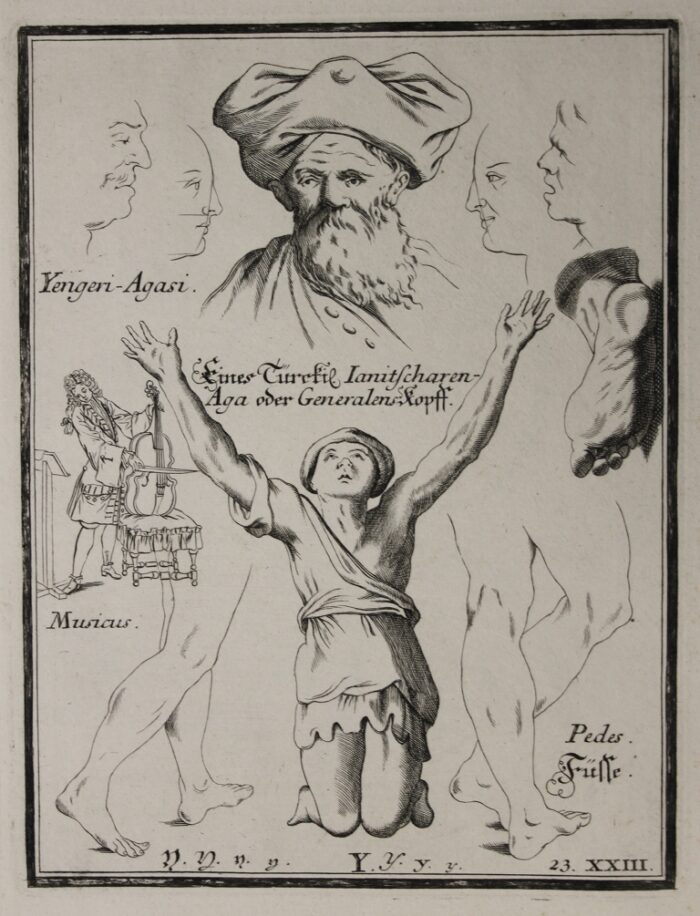 Yengeri-Agasi.
Eines Türckiſ. Ianitſcharen-
Aga oder Generalens Kopff.
Musicus.
Pedes.
Füſſe.
Y. Y. y. y. Y. Y. y. y. 23. XXIII.